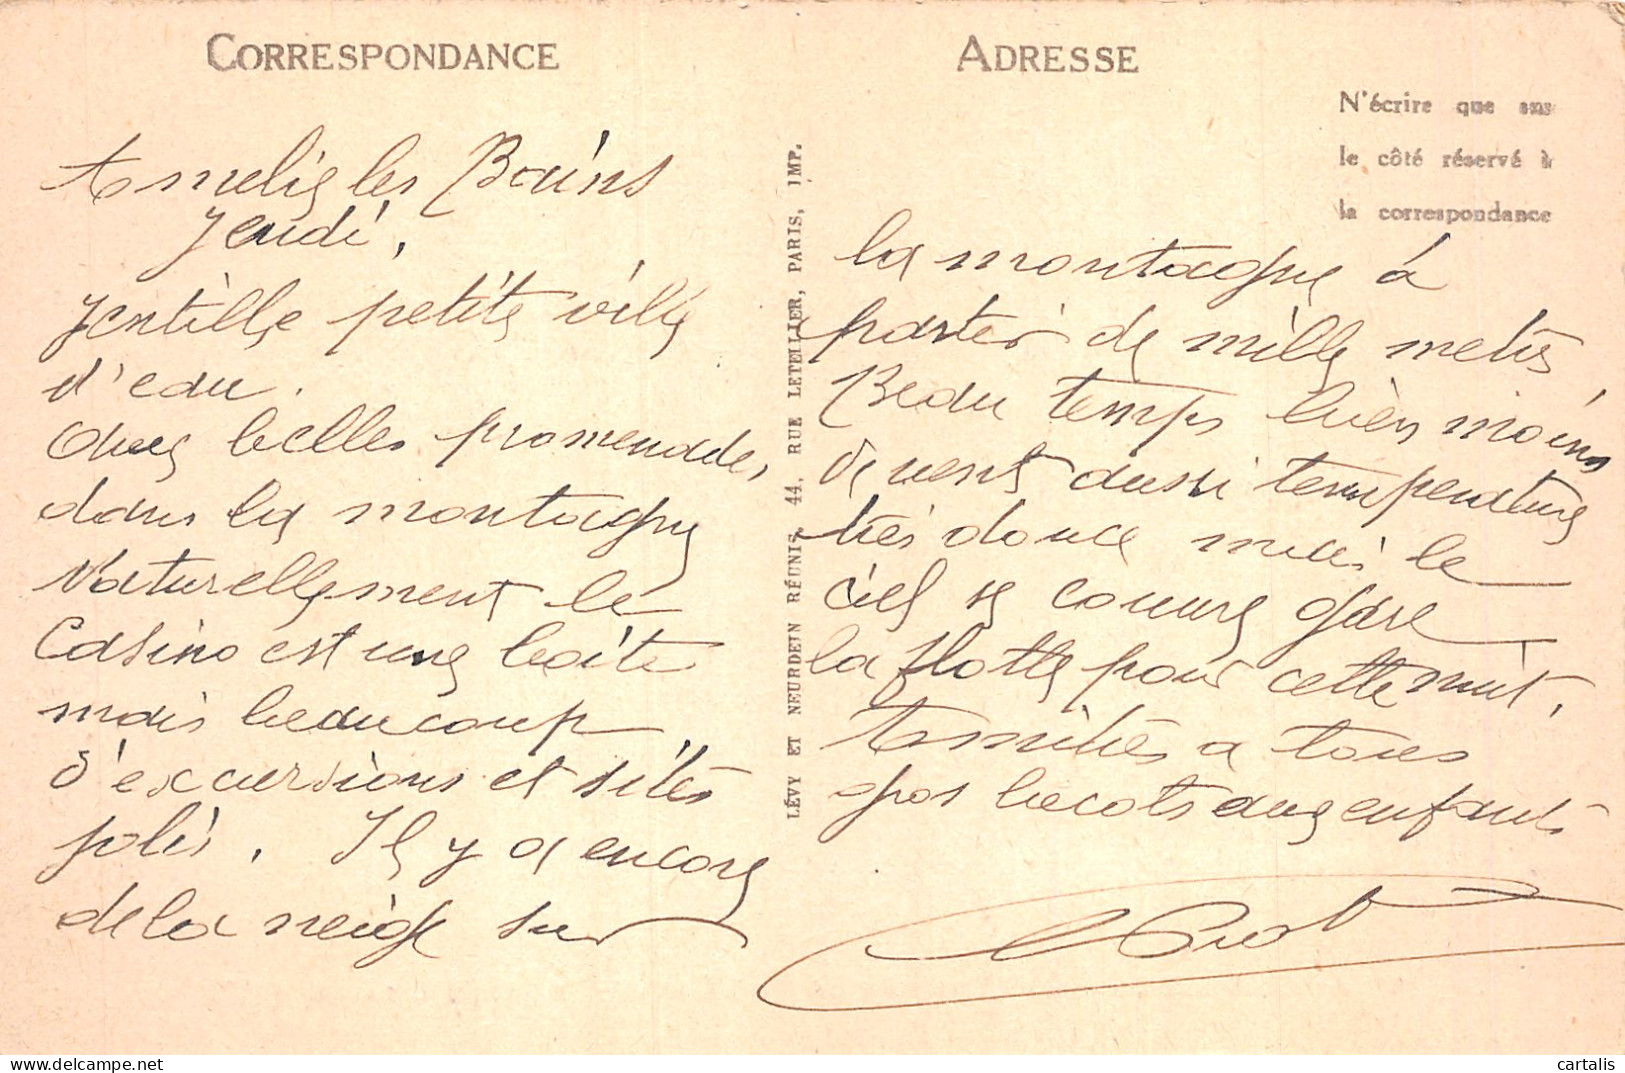 CORRESPONDANCE
Amelie les Bains
Jeudi,
Jentille petite ville
d'eau.
Avec belles promenades,
dans la montagne
Naturellement le
Casino est une boite
mais beaucoup
d'excursions et sites
jolis. Il y a encore
de la neige sur
LÉVY ET NEURDEIN RÉUNIS, 44, RUE LETELLIER, PARIS, IMP.
ADRESSE
N'écrire que sur
le côté réservé à
la correspondance
la montagne à
partir de mille metres
Beau temps bien moins
de vent aussi temperature
très douce mais le
ciel se couvre gare
la flotte pour cette nuit.
Amitiés a tous
gros becots aux enfants
cartalis